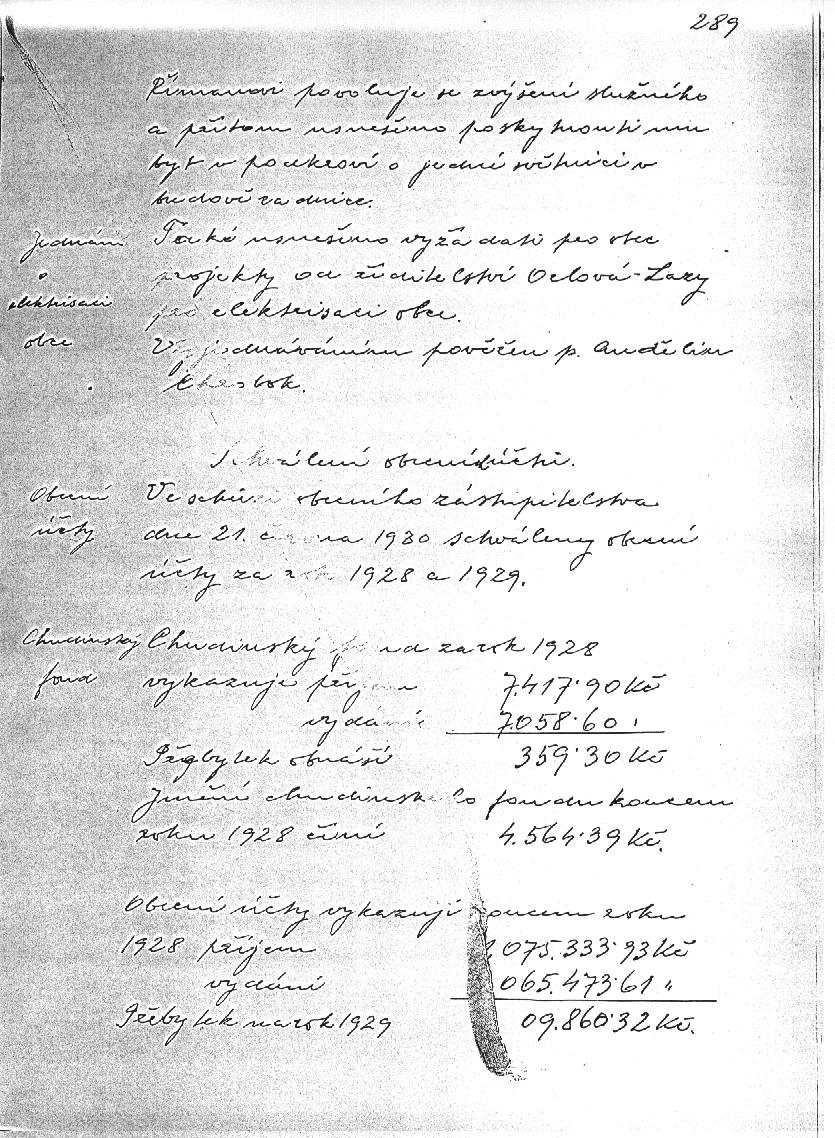 289
Římanovi povoluje se zvýšení služného
a přitom usnešeno poskytnouti mu
byt v podkroví o jedné světnici v
budově radnice.
Jednání
o
elektrisaci
obce
Také usnešeno vyžádati pro obec
projekty od ředitelství Orlová-Lazy
pro elektrisaci obce.
Vyjednáváním pověřen p. Anděllin
Schválení obecních účtů.
Obecní
účty
Ve schůzi obecního zastupitelstva
dne 21. června 1930 schváleny obecní
účty za rok 1928 a 1929.
Chudinský
fond
Chudinský fond za rok 1928
vykazuje příjem 7.417·90 Kč
vydání 7.058·60 "
Přebytek obnáší 359·30 Kč
Jmění chudinského fondu koncem
roku 1928 činí 4.564·39 Kč.
Obecní účty vykazují koncem roku
1928 příjem 075.333·93 Kč
vydání 065.473·61 "
Přebytek na rok 1929 09.860·32 Kč.